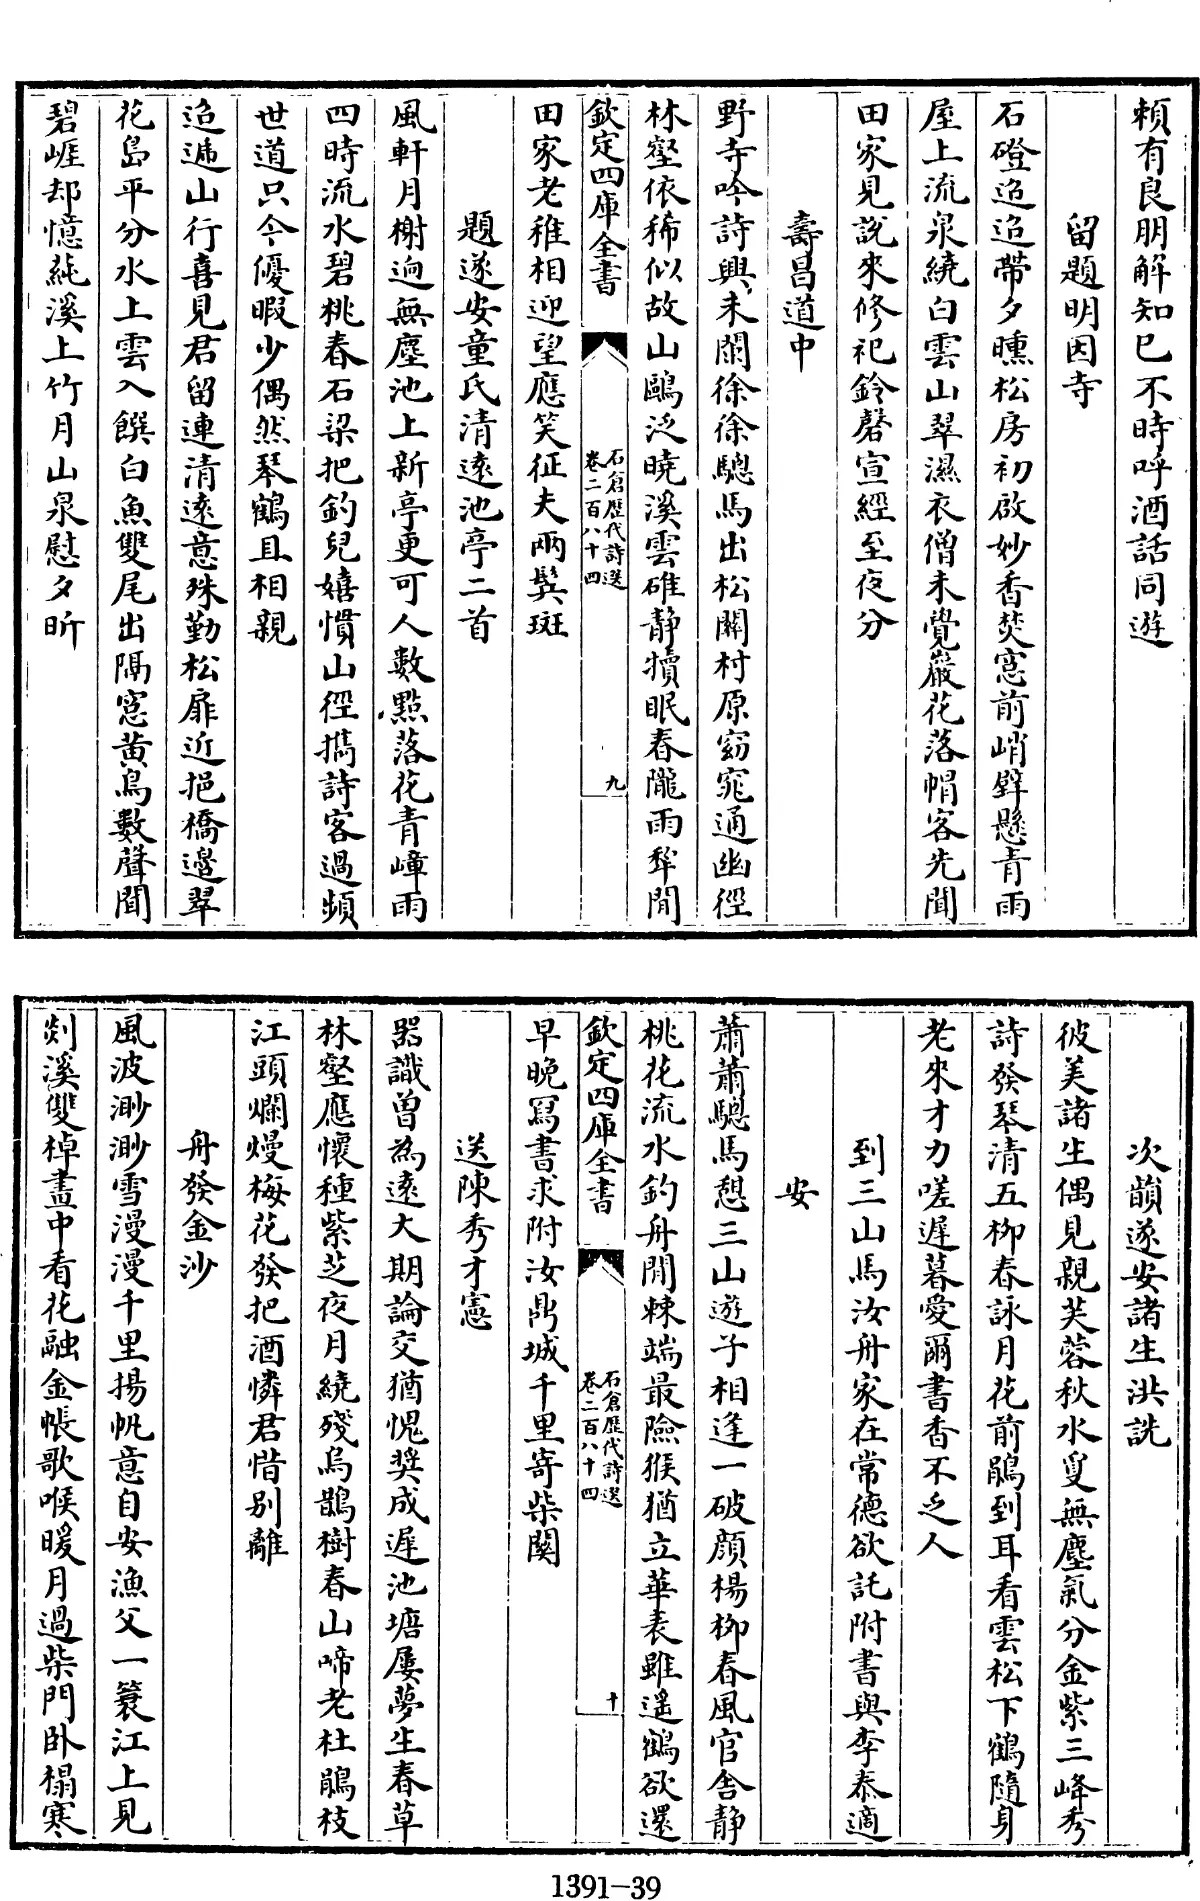 賴有良朋解知已不時呼酒話同遊
留題明因寺
石磴迢迢帶夕曛松房初啟妙香焚窓前峭壁懸青雨
屋上流泉繞白雲山翠濕衣僧未覺巖花落帽客先聞
田家見說來修祀鈴磬宣經至夜分
壽昌道中
野寺吟詩興未闌徐徐驄馬出松關村原窈窕通幽徑
林壑依稀似故山鷗泛曉溪雲碓靜犢眠春隴雨犂閒
欽定四庫全書
石倉歷代詩選
卷二百八十四
九
田家老稚相迎望應笑征夫兩鬂斑
題遂安童氏清遠池亭二首
風軒月榭逈無塵池上新亭更可人數點落花青嶂雨
四時流水碧桃春石梁把釣兒嬉慣山徑携詩客過頻
世道只今優暇少偶然琴鶴且相親
迢遞山行喜見君留連清遠意殊勤松扉近挹橋邊翠
花島平分水上雲入饌白魚雙尾出隔窓黄鳥數聲聞
碧崕却憶純溪上竹月山泉慰夕昕
次韻遂安諸生洪詵
彼美諸生偶見親芙蓉秋水夐無塵氣分金紫三峰秀
詩發琴清五柳春詠月花前鵑到耳看雲松下鶴隨身
老來才力嗟遲暮愛爾書香不乏人
到三山馬汝舟家在常德欲託附書與李泰適
安
蕭蕭驄馬憇三山遊子相逢一破顔楊柳春風官舍靜
桃花流水釣舟閒棘端最險猴猶立華表雖遥鶴欲還
欽定四庫全書
石倉歷代詩選
卷二百八十四
十
早晩冩書求附汝鼎城千里寄柴關
送陳秀才憲
器識曾為遠大期論交猶愧奬成遲池塘屢夢生春草
林壑應懷種紫芝夜月繞殘烏鵲樹春山啼老杜鵑枝
江頭爛熳梅花發把酒憐君惜别離
舟發金沙
風波渺渺雪漫漫千里揚帆意自安漁父一簑江上見
剡溪雙棹畫中看花融金帳歌喉暖月過柴門卧榻寒
1391—39